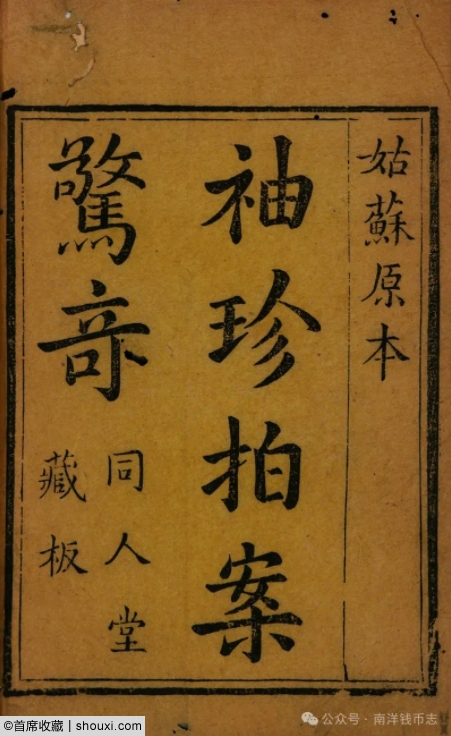 姑蘇原本
袖珍拍案
驚奇
同人堂
藏板
©首席收藏 | shouxi.com
公众号 · 南洋钱币志